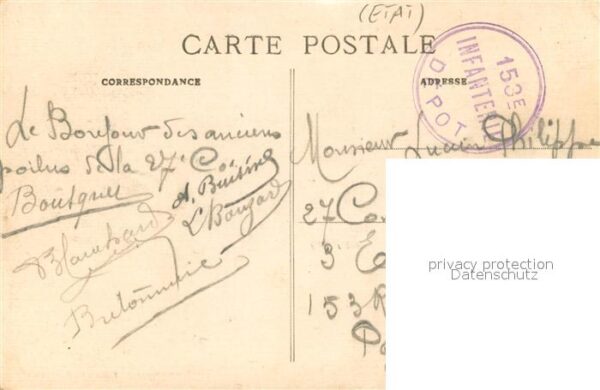 (ETAT)
CARTE POSTALE
CORRESPONDANCE
ADRESSE
153E
INFANTERIE
DÉPOT
Le Bonjour des anciens
poilus de la 27e Cie
A. Buisine
L. Bouzard
Monsieur Lucien Philippe
27 Co
3 E
153 R
privacy protection
Datenschutz